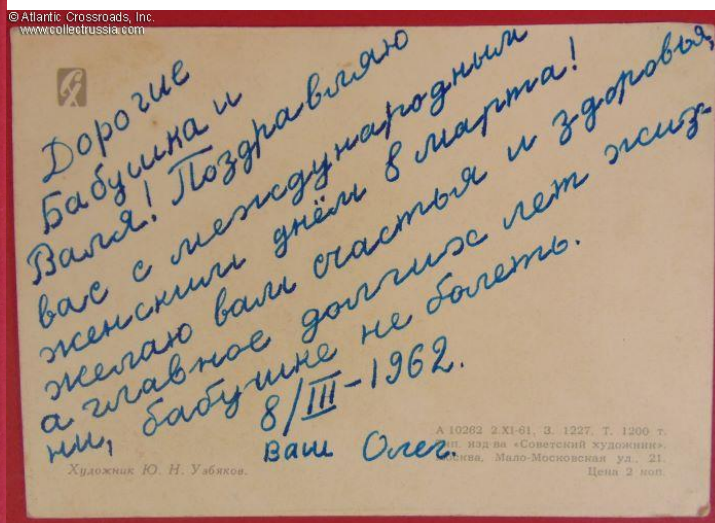 © Atlantic Crossroads, Inc.
www.collectrussia.com
Дорогие
Бабушка и
Валя! Поздравляю
вас с международным
женским днём 8 марта!
желаю вам счастья и здоровья,
а главное долгих лет жиз-
ни, бабушке не болеть.
8/III-1962.
Ваш Олег.
А 10262 2.XI-61, З. 1227, Т. 1200 т.
Тип. изд-ва «Советский художник».
Москва, Мало-Московская ул., 21.
Художник Ю. Н. Узбяков.
Цена 2 коп.